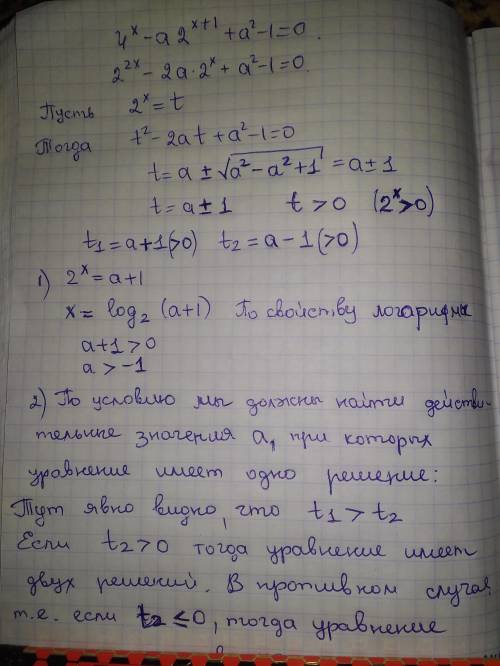 4^x - a 2^{x+1} + a² - 1 = 0.
2^{2x} - 2a · 2^x + a² - 1 = 0.
Пусть 2^x = t
Тогда t² - 2at + a² - 1 = 0
t = a ± √(a² - a² + 1) = a ± 1
t = a ± 1 t > 0 (2^x > 0)
t₁ = a + 1 (>0) t₂ = a - 1 (>0)
1) 2^x = a + 1
x = log₂ (a+1) По свойству логарифма
a + 1 > 0
a > -1
2) По условию мы должны найти действи-
тельные значения a, при которых
уравнение имеет одно решение:
Тут явно видно, что t₁ > t₂
Если t₂ > 0 тогда уравнение имеет
двух решений. В противном случае,
т.е. если t₂ ≤ 0, тогда уравнение